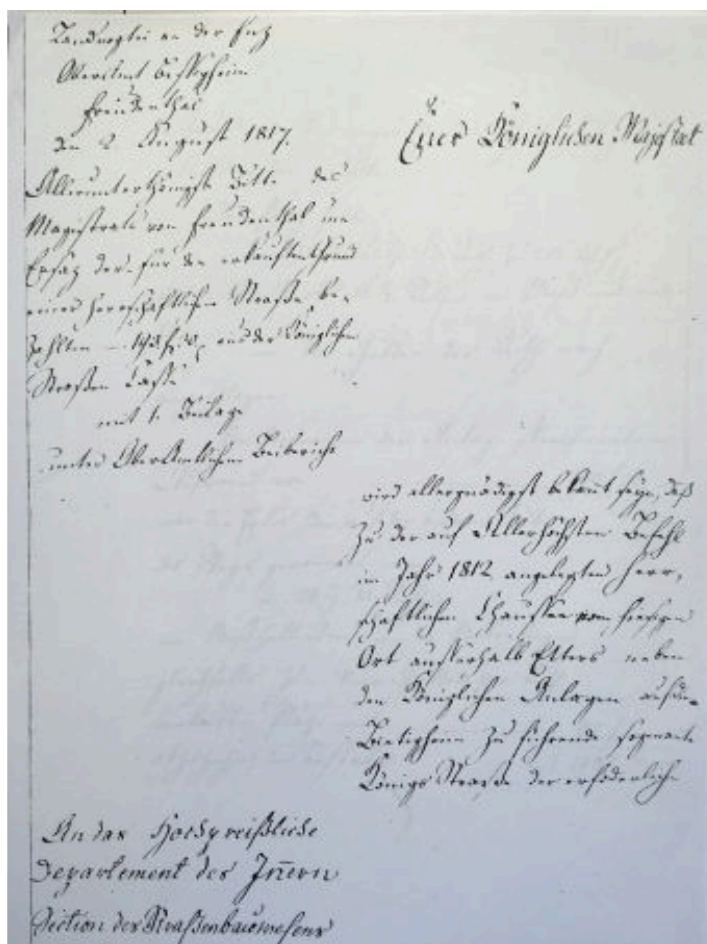 Landvogtei an der Enz
Oberamt Besigheim
Freudenthal
den 2. August 1817.
Allerunterthänigste Bitte des
Magistrats von Freudenthal um
Ersaz der für den erkauften Grund
einer herrschaftlichen Straße be-
zahlten aus der Königlichen
Straßen Casse
mit 1. Beilage
unter OberAmtlichem Beibericht
Euer Königlichen Majestät
wird allergnädigst bekannt seyn, daß
zu der auf Allerhöchsten Befehl
im Jahr 1812 angelegten herr-
schaftlichen Chaussee vom hiesigen
Ort ausserhalb Etters neben
den Königlichen Anlagen
Bietigheim zu führende sogenante
Königs Strasse der erforderliche
An das Hochpreißliche
Departement des Innern
Section des Straßenbauwesens